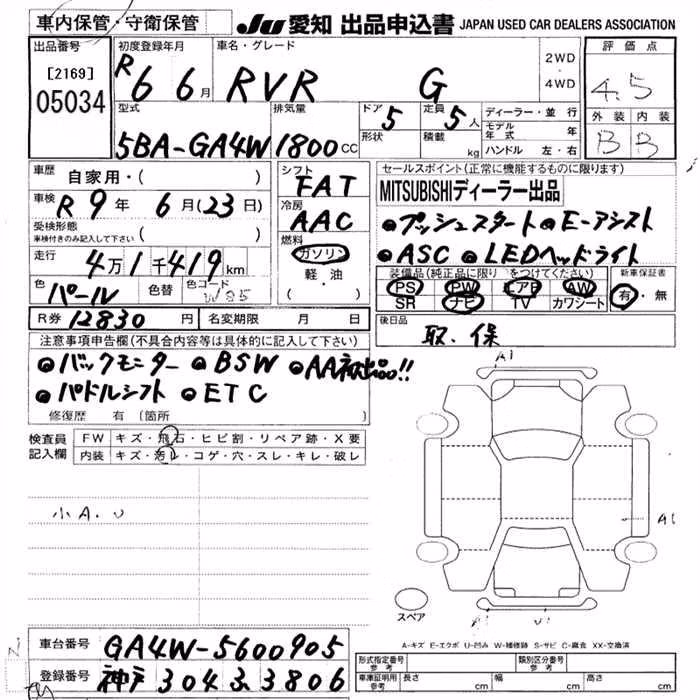 車内保管・守衛保管 Ju 愛知 出品申込書 JAPAN USED CAR DEALERS ASSOCIATION
出品番号 初度登録年月 車名・グレード 2WD・4WD 評価点
[2169] R6 6月 RVR G 4.5
05034 型式 排気量 ドア 5 定員 5人 ディーラー・並行 外装 内装
5BA-GA4W 1800cc 形状 積載 kg モデル年式 年 B B
ハンドル 左・右
車歴 自家用・( ) シフト FAT セールスポイント(正常に機能するものに限ります)
車検 R9年 6月(23日) 冷房 AAC MITSUBISHIディーラー出品
受検形態 車検付きのみ記入して下さい ( ) 燃料 ガソリン ●プッシュスタート ●E-アシスト
走行 4万1千419km 軽・油 ●ASC ●LEDヘッドライト
色 パール 色替 色コード W85 ( ) 装備品(純正品に限り○をつけてください) 新車保証書
PS PW エアB AW 有・無
SR ナビ TV カワシート
R券 12830円 名変期限 月 日 後日品
取.保
注意事項申告欄(不具合内容等は具体的に記入して下さい)
●バックモニター ●BSW ●AA初出品!!
●パドルシフト ●ETC
修復歴 有 (箇所 )
検査員記入欄 FW キズ・飛石・ヒビ割・リペア跡・X要
内装 キズ・汚レ・コゲ・穴・スレ・キレ・破レ
小A.U
A1
A1
スペア
A1 U1
A-キズ E-エクボ U-凹み W-補修跡 S-サビ C-腐食 XX-交換済
車台番号 GA4W-5600905
登録番号 神戸 304 ふ 3806
形式指定番号参考 類別区分番号参考
車庫証明用参考 長さ cm 幅 cm 高さ cm